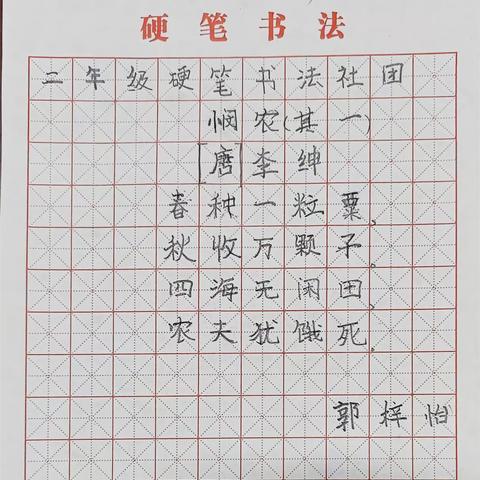 硬笔书法
二年级硬笔书法社团
悯农(其一)
[唐]李绅
春种一粒粟,
秋收万颗子。
四海无闲田,
农夫犹饿死。
郭梓怡